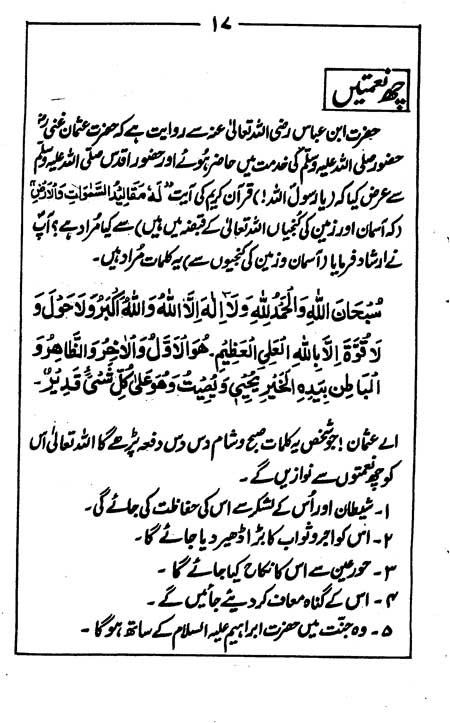 ۱۷
چھ نعمتیں
حضرت ابن عباس رضی اللہ تعالیٰ عنہ سے روایت ہے کہ حضرت عثمان غنی رضؓ
حضور صلی اللہ علیہ وسلم کی خدمت میں حاضر ہوئے اور حضور اقدس صلی اللہ علیہ وسلم
سے عرض کیا کہ (یا رسول اللہ!) قرآن کریم کی آیت "لَهٗ مَقَالِيْدُ السَّمٰوَاتِ وَالْاَرْضِ"
(کہ آسمان اور زمین کی کنجیاں اللہ تعالیٰ کے قبضہ میں ہیں) سے کیا مراد ہے؟ آپؐ
نے ارشاد فرمایا (آسمان و زمین کی کنجیوں سے) یہ کلمات مُراد ہیں۔
سُبْحَانَ اللّٰهِ وَالْحَمْدُ لِلّٰهِ وَلَآ اِلٰهَ اِلَّا اللّٰهُ وَاللّٰهُ اَكْبَرُ وَلَا حَوْلَ وَ
لَا قُوَّةَ اِلَّا بِاللّٰهِ الْعَلِيِّ الْعَظِيْمِ۔ هُوَ الْاَوَّلُ وَالْاٰخِرُ وَالظَّاهِرُ وَ
الْبَاطِنُ بِيَدِهِ الْخَيْرُ يُحْيِيْ وَيُمِيْتُ وَهُوَ عَلٰى كُلِّ شَىْءٍ قَدِيْرٌ۔
اے عثمان! جو شخص یہ کلمات صبح و شام دس دس دفعہ پڑھے گا اللہ تعالیٰ اس
کو چھ نعمتوں سے نوازیں گے۔
۱۔ شیطان اور اُس کے لشکر سے اس کی حفاظت کی جائے گی۔
۲۔ اس کو اجر و ثواب کا بڑا ڈھیر دیا جائے گا۔
۳۔ حورعین سے اس کا نکاح کیا جائے گا۔
۴۔ اس کے گناہ معاف کر دیئے جائیں گے۔
۵۔ وہ جنّت میں حضرت ابراہیم علیہ السلام کے ساتھ ہوگا۔